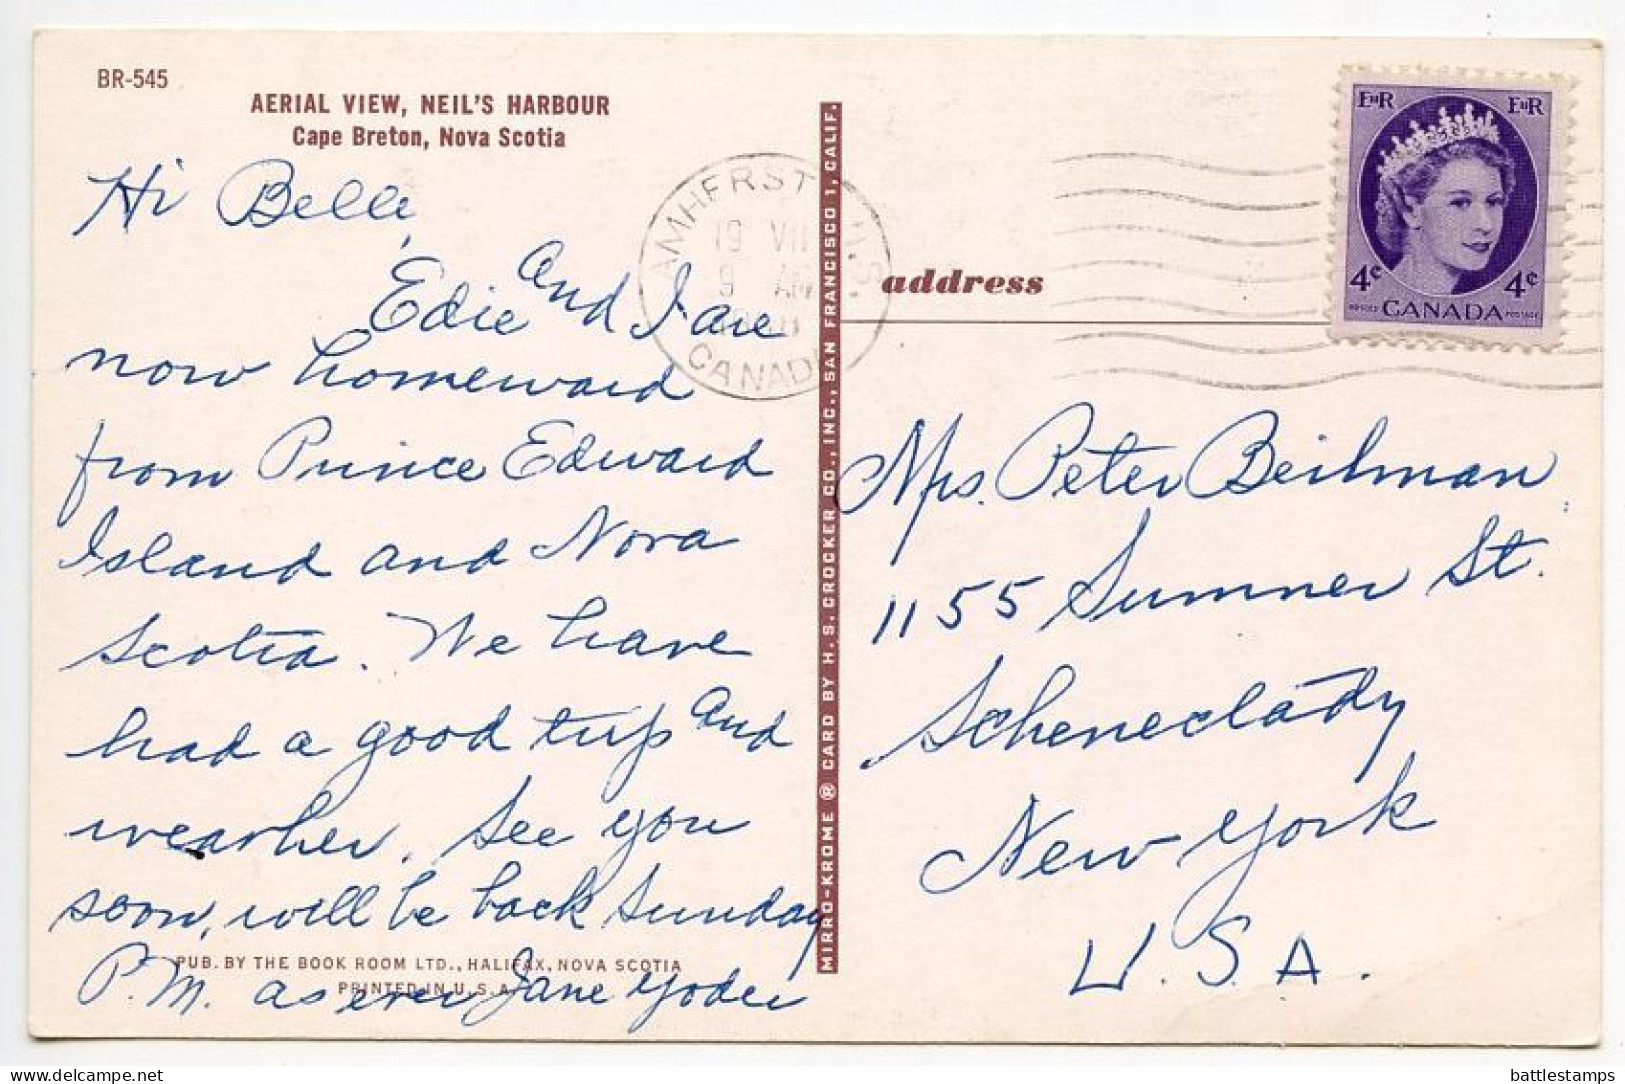 BR-545
AERIAL VIEW, NEIL'S HARBOUR
Cape Breton, Nova Scotia
Hi Belle,
Edie and I are
now homeward
from Prince Edward
Island and Nova
Scotia. We have
had a good trip and
weather. See you
soon, will be back Sunday
P.M. as ever Jane Yoder
PUB. BY THE BOOK ROOM LTD., HALIFAX, NOVA SCOTIA
PRINTED IN U.S.A.
MIRRO-KROME ® CARD BY H. S. CROCKER CO., INC., SAN FRANCISCO 1, CALIF.
AMHERST N.S.
19 VII
9 AM
CANADA
address
EIIR EIIR
4¢ 4¢
CANADA
POSTES POSTAGE
Mrs. Peter Beilman
1155 Sumner St.
Schenectady
New York
U.S.A.
battlestamps